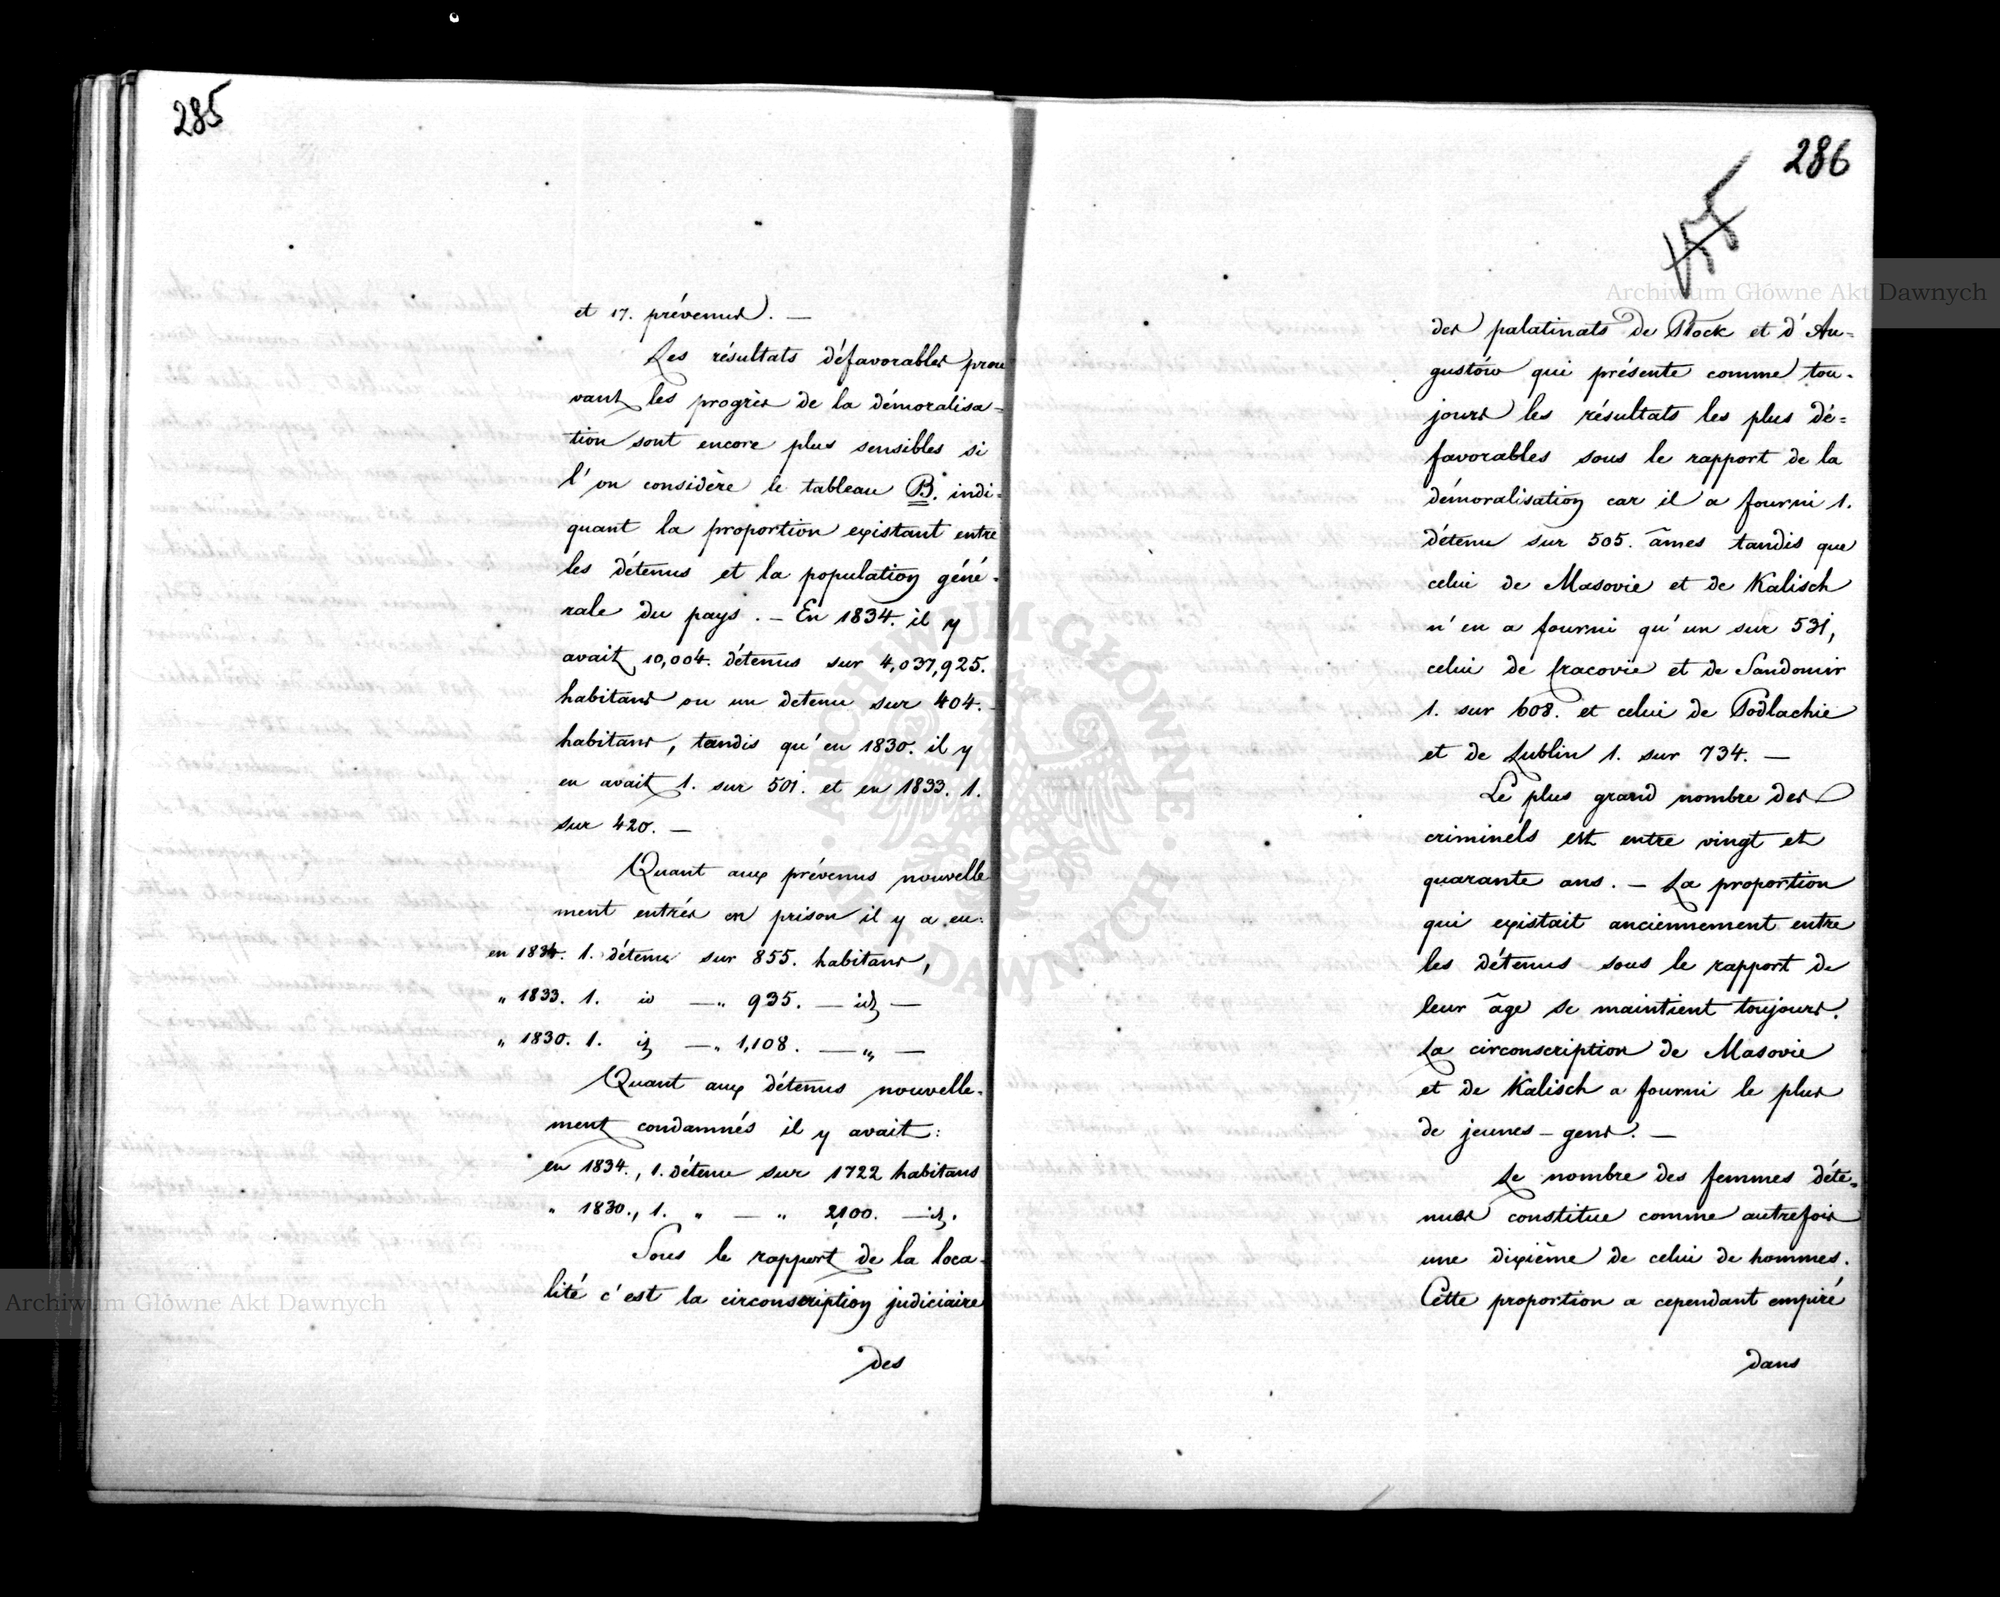 285
et 17. prévenus. —
Les résultats défavorables prou
vant les progrès de la démoralisa-
tion sont encore plus sensibles si
l'on considère le tableau B. indi-
quant la proportion existant entre
les détenus et la population géné-
rale du pays. — En 1834. il y
avait 10,004. détenus sur 4,037,925.
habitans ou un detenu sur 404.
habitans, tandis qu'en 1830. il y
en avait 1. sur 501. et en 1833. 1.
sur 420. —
Quant aux prévenus nouvelle
ment entrés en prison il y a eu:
en 1834. 1. détenu sur 855. habitans,
„ 1833. 1. id —„ 935. — id —
„ 1830. 1. id —„ 1,108. — „ —
Quant aux détenus nouvelle-
ment condamnés il y avait:
en 1834., 1. détenu sur 1722 habitans
„ 1830., 1. „ — „ 2,100. — id.
Sous le rapport de la loca-
lité c'est la circonscription judiciaire
des
286
155
des palatinats de Płock et d'Au-
gustów qui présente comme tou-
jours les résultats les plus dé-
favorables sous le rapport de la
démoralisation car il a fourni 1.
détenu sur 505. âmes tandis que
celui de Masovie et de Kalisch
n'en a fourni qu'un sur 531,
celui de Cracovie et de Sandomir
1. sur 608. et celui de Podlachie
et de Lublin 1. sur 734. —
Le plus grand nombre des
criminels est entre vingt et
quarante ans. — La proportion
qui existait anciennement entre
les détenus sous le rapport de
leur âge se maintient toujours.
La circonscription de Masovie
et de Kalisch a fourni le plus
de jeunes-gens. —
Le nombre des femmes déte-
nues constitue comme autrefois
une dixième de celui de hommes.
Cette proportion a cependant empiré
dans
Archiwum Główne Akt Dawnych
Archiwum Główne Akt Dawnych
ARCHIWUM GŁÓWNE AKT DAWNYCH